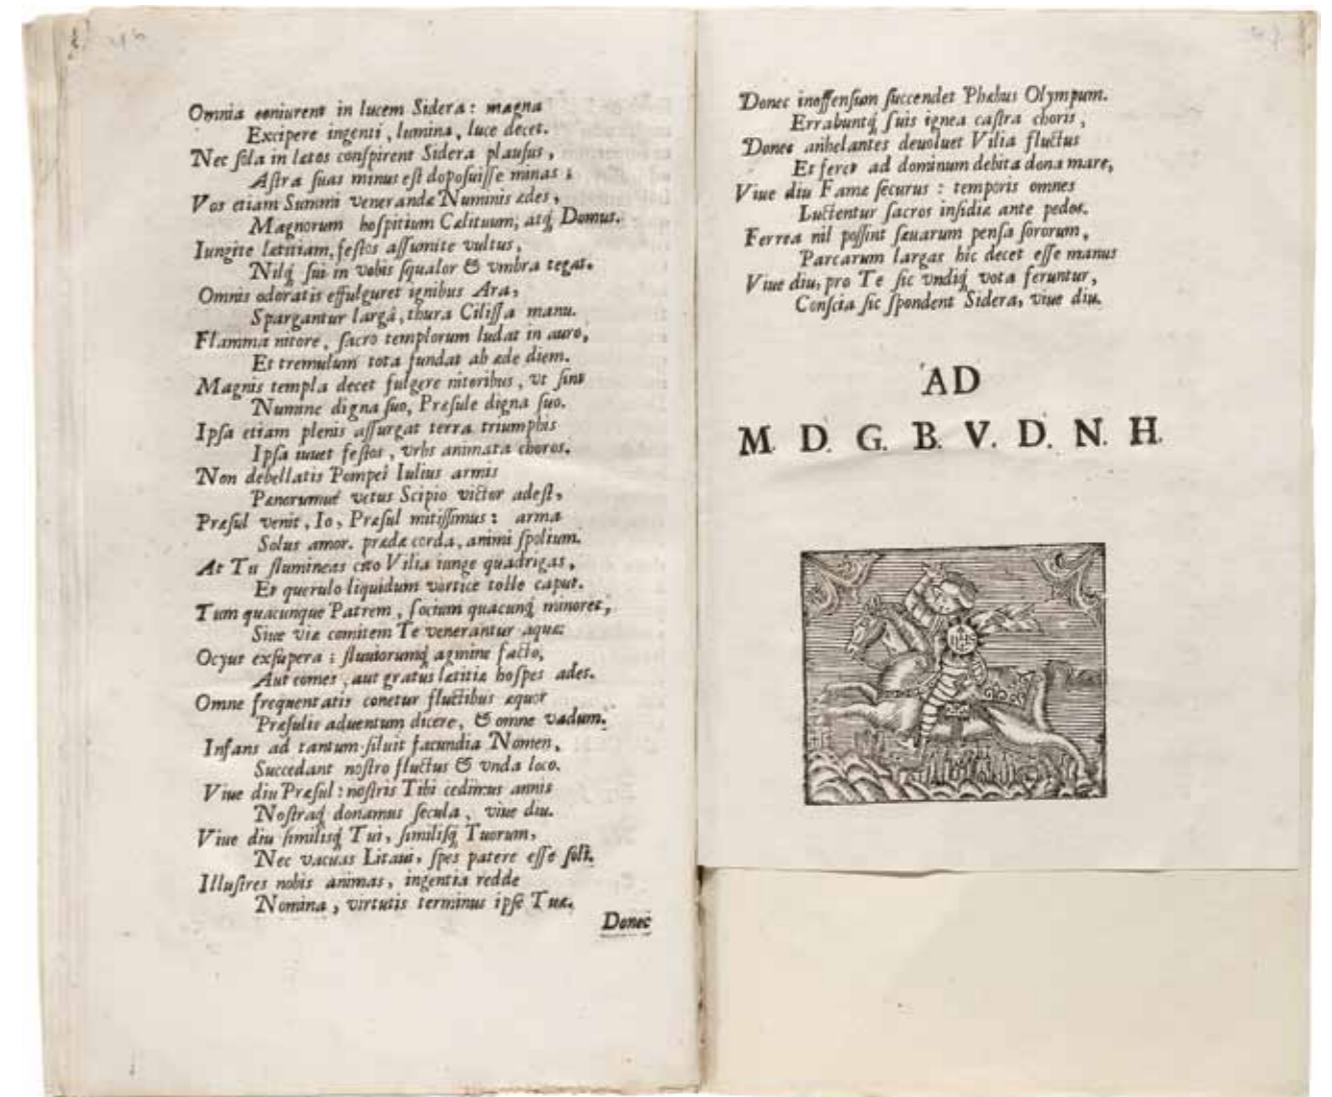 Omnia coniurent in lucem Sidera: magna
Excipere ingenti, lumina, luce decet.
Nec ſola in lætos conſpirent Sidera plauſus,
Aſtra ſuas minus eſt dopoſuiſſe minas:
Vos etiam Summi venerandæ Numinis ædes,
Magnorum hoſpitium Cælituum, atq́ Domus.
Iungite lætitiam, feſtos aſſumite vultus,
Nilq́ ſui in vobis ſqualor & vmbra tegat.
Omnis odoratis effulguret ignibus Ara,
Spargantur largâ, thura Ciliſſa manu.
Flamma nitore, ſacro templorum ludat in auro,
Et tremulum tota fundat ab æde diem.
Magnis templa decet fulgere nitoribus, vt ſint
Numine digna ſuo, Præſule digna ſuo.
Ipſa etiam plenis aſſurgat terra triumphis
Ipſa iuuet feſtos, vrbs animata choros.
Non debellatis Pompeî Iulius armis
Pænorumué vetus Scipio victor adeſt,
Præſul venit, Io, Præſul mitiſſimus: arma
Solus amor. prædæ corda, animi ſpolium.
At Tu flumineas cito Vilia iunge quadrigas,
Et querulo liquidum vortice tolle caput.
Tum quacunque Patrem, ſocium quacunq́ minoret,
Siue viæ comitem Te venerantur aquæ:
Ocyus exſupera: fluuiorumq́ agmine facto,
Aut comes, aut gratus lætitiæ hoſpes ades.
Omne frequentatis conetur fluctibus æquor
Præſulis aduentum dicere, & omne vadum.
Infans ad tantum ſiluit facundia Nomen,
Succedant noſtro fluctus & vnda loco.
Viue diu Præſul: noſtris Tibi cedimus annis
Noſtraq́ donamus ſecula, viue diu.
Viue diu ſimilisq́ Tui, ſimiliſq́ Tuorum,
Nec vacuas Litaui, ſpes patere eſſe ſoli.
Illuſtres nobis animas, ingentia redde
Nomina, virtutis terminus ipſe Tuæ.
Donec
Donec inoffenſum ſuccendet Phæbus Olympum.
Errabuntq́ ſuis ignea caſtra choris,
Donec anhelantes deuoluet Vilia fluctus
Et feret ad dominum debita dona mare,
Viue diu Famæ ſecurus: temporis omnes
Luctentur ſacros inſidiæ ante pedes.
Ferrea nil poſſint ſæuarum penſa ſororum,
Parcarum largas hîc decet eſſe manus
Viue diu, pro Te ſic vndiq́ vota feruntur,
Conſcia ſic ſpondent Sidera, viue diu.
AD
M. D. G. B. V. D. N. H.
IHS